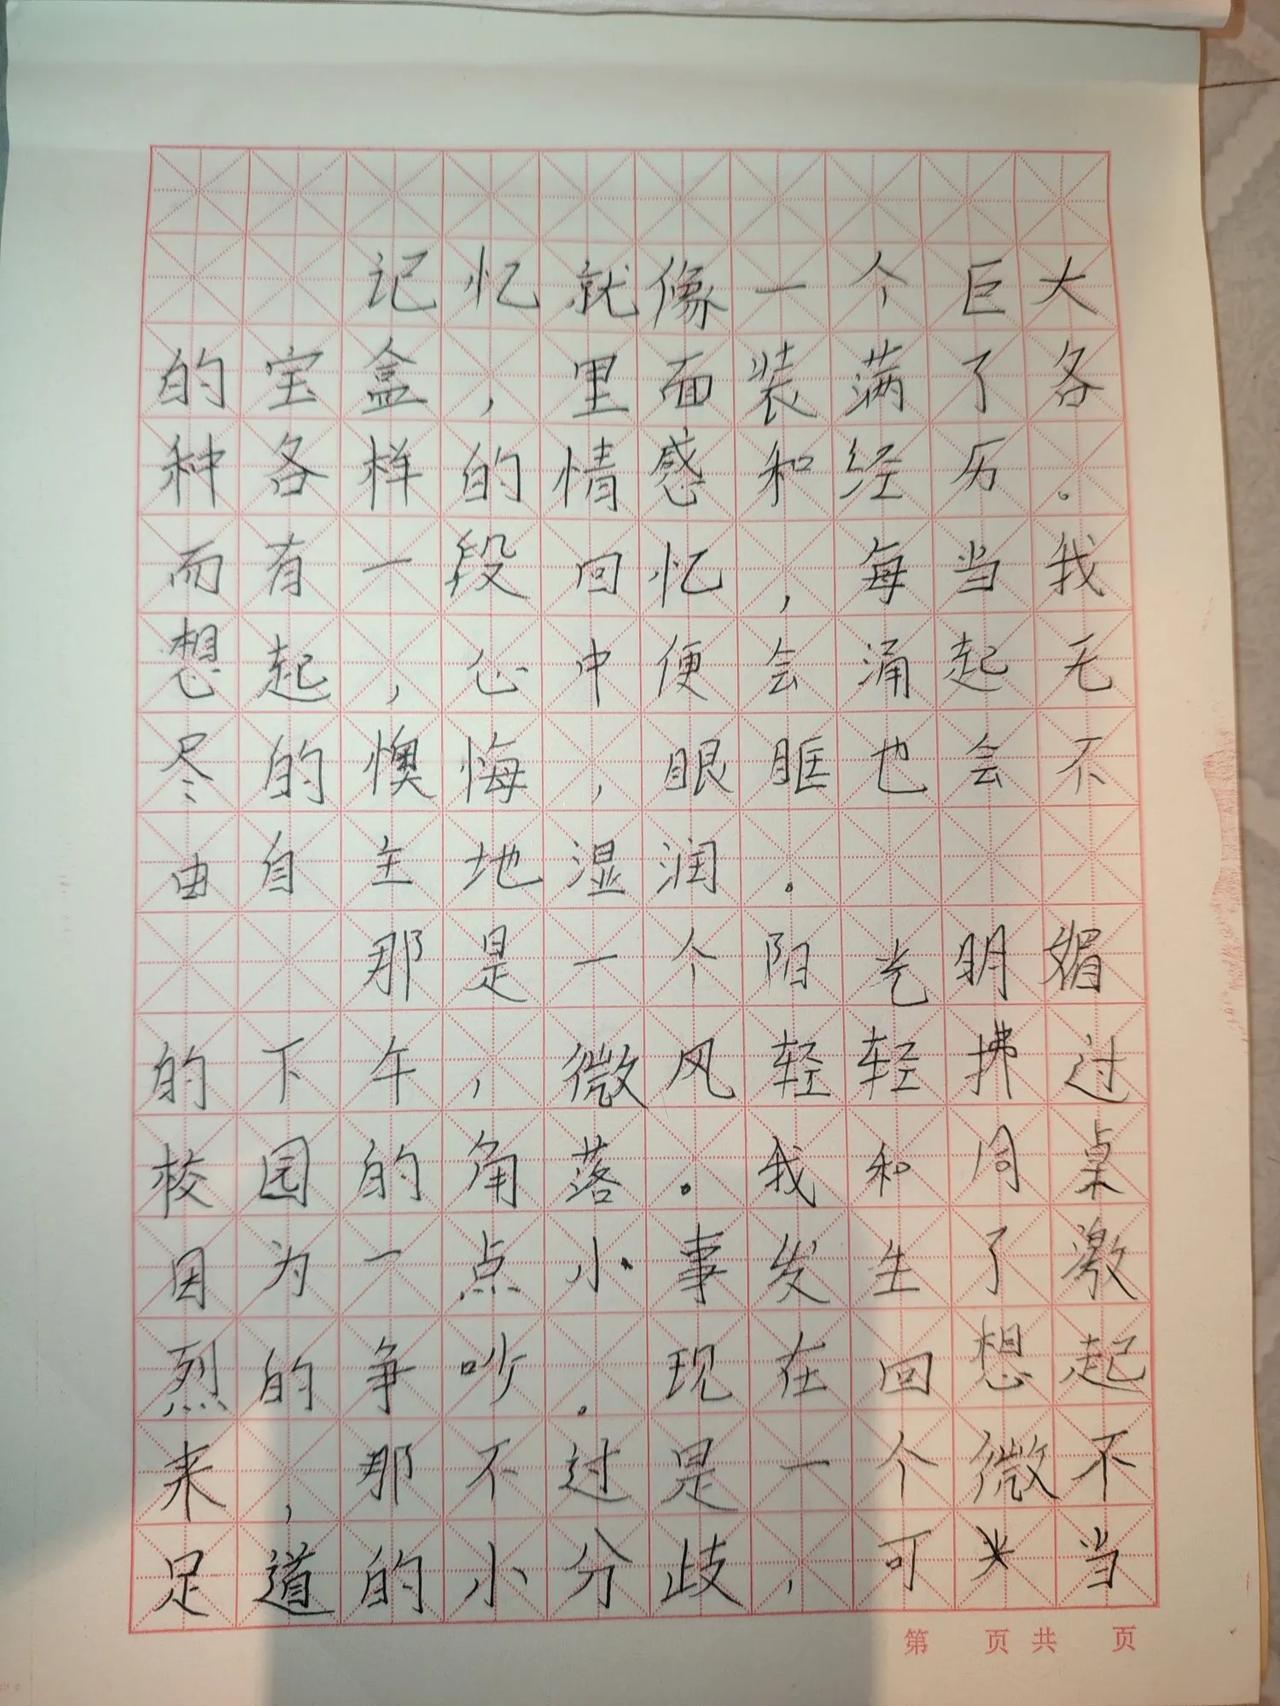 记忆就像一个巨大
的宝盒，里面装满了各
种各样的情感和经历。
而有一段回忆，每当我
想起，心中便会涌起无
尽的懊悔，眼眶也会不
由自主地湿润。
那是一个阳光明媚
的下午，微风轻轻拂过
校园的角落。我和同桌
因为一点小事发生了激
烈的争吵。现在回想起
来，那不过是一个微不
足道的小分歧，可当
第 页 共 页